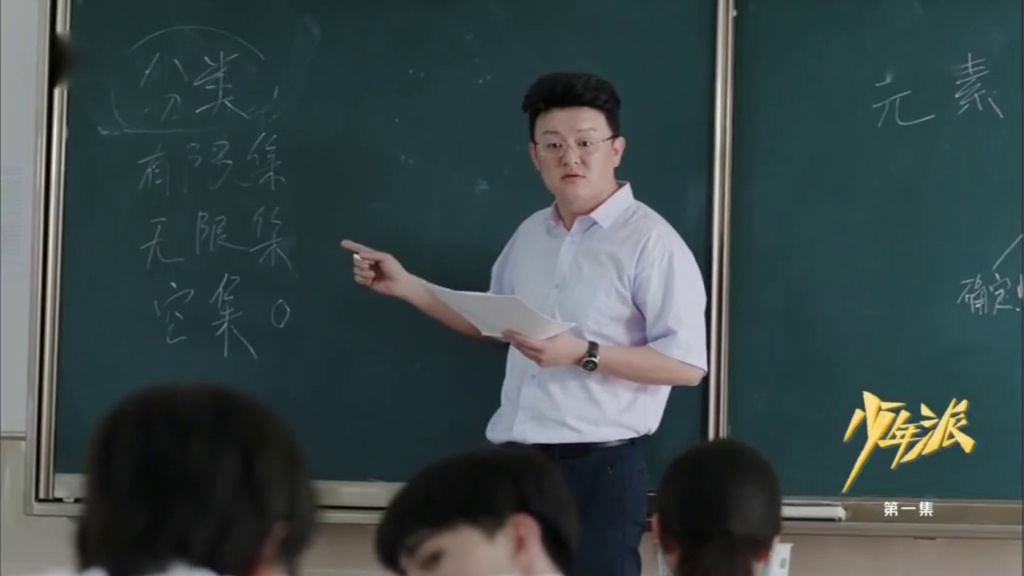 分类
有限集
无限集
空集 0
元素
确定
少年派
第一集